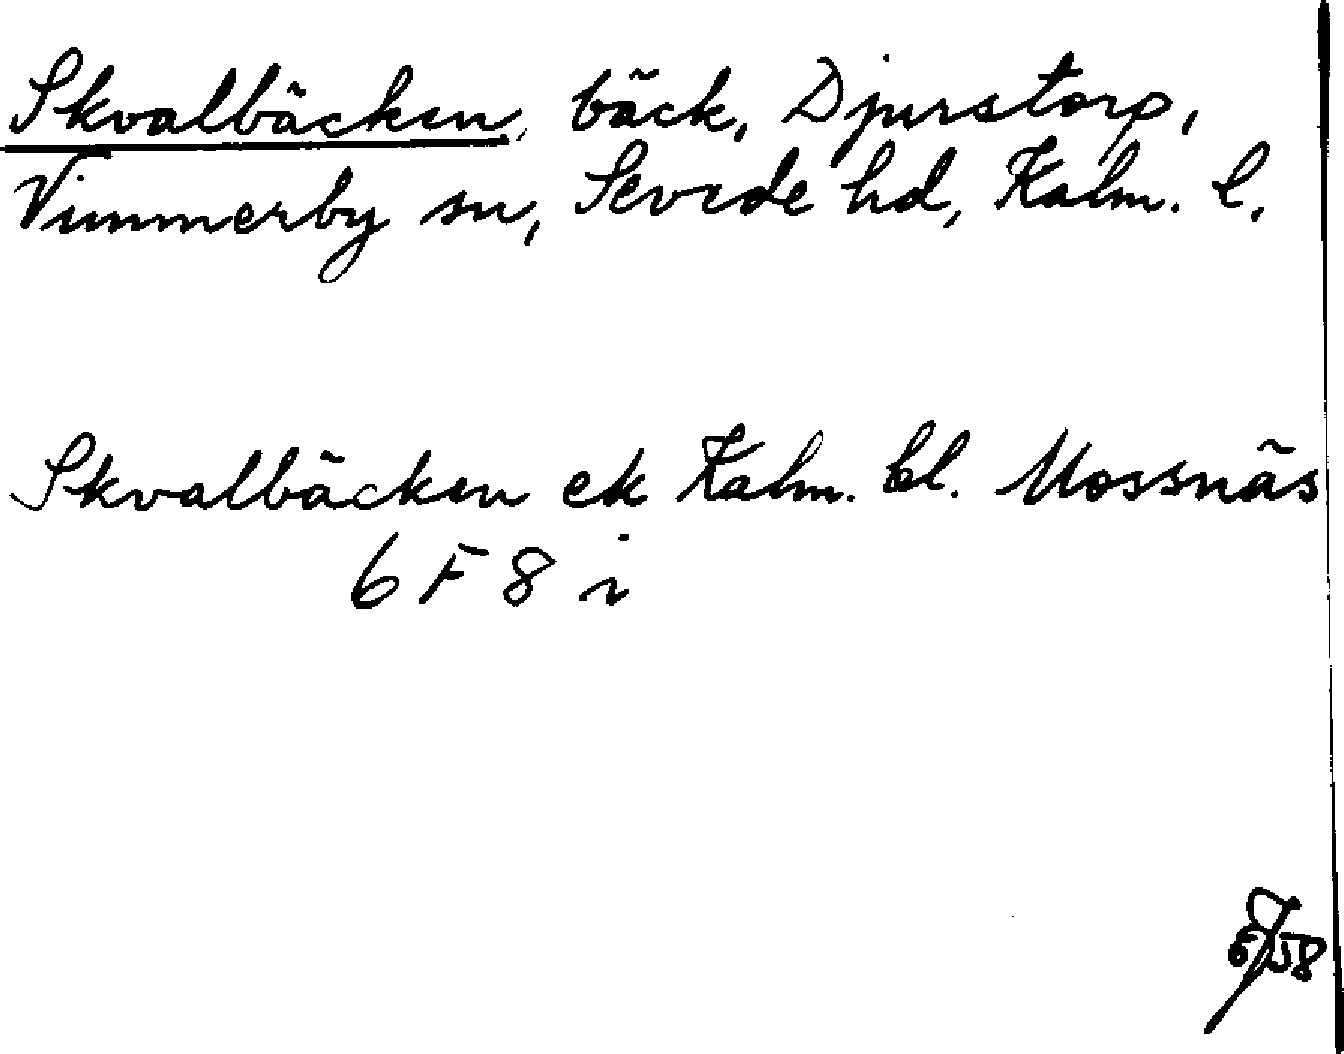 Skvalbäcken, bäck, Djurstorp,
Vimmerby sn, Sevede hd, Kalm. l.
Skvalbäcken ek Kalm. bl. Mossnäs
6 F 8 i